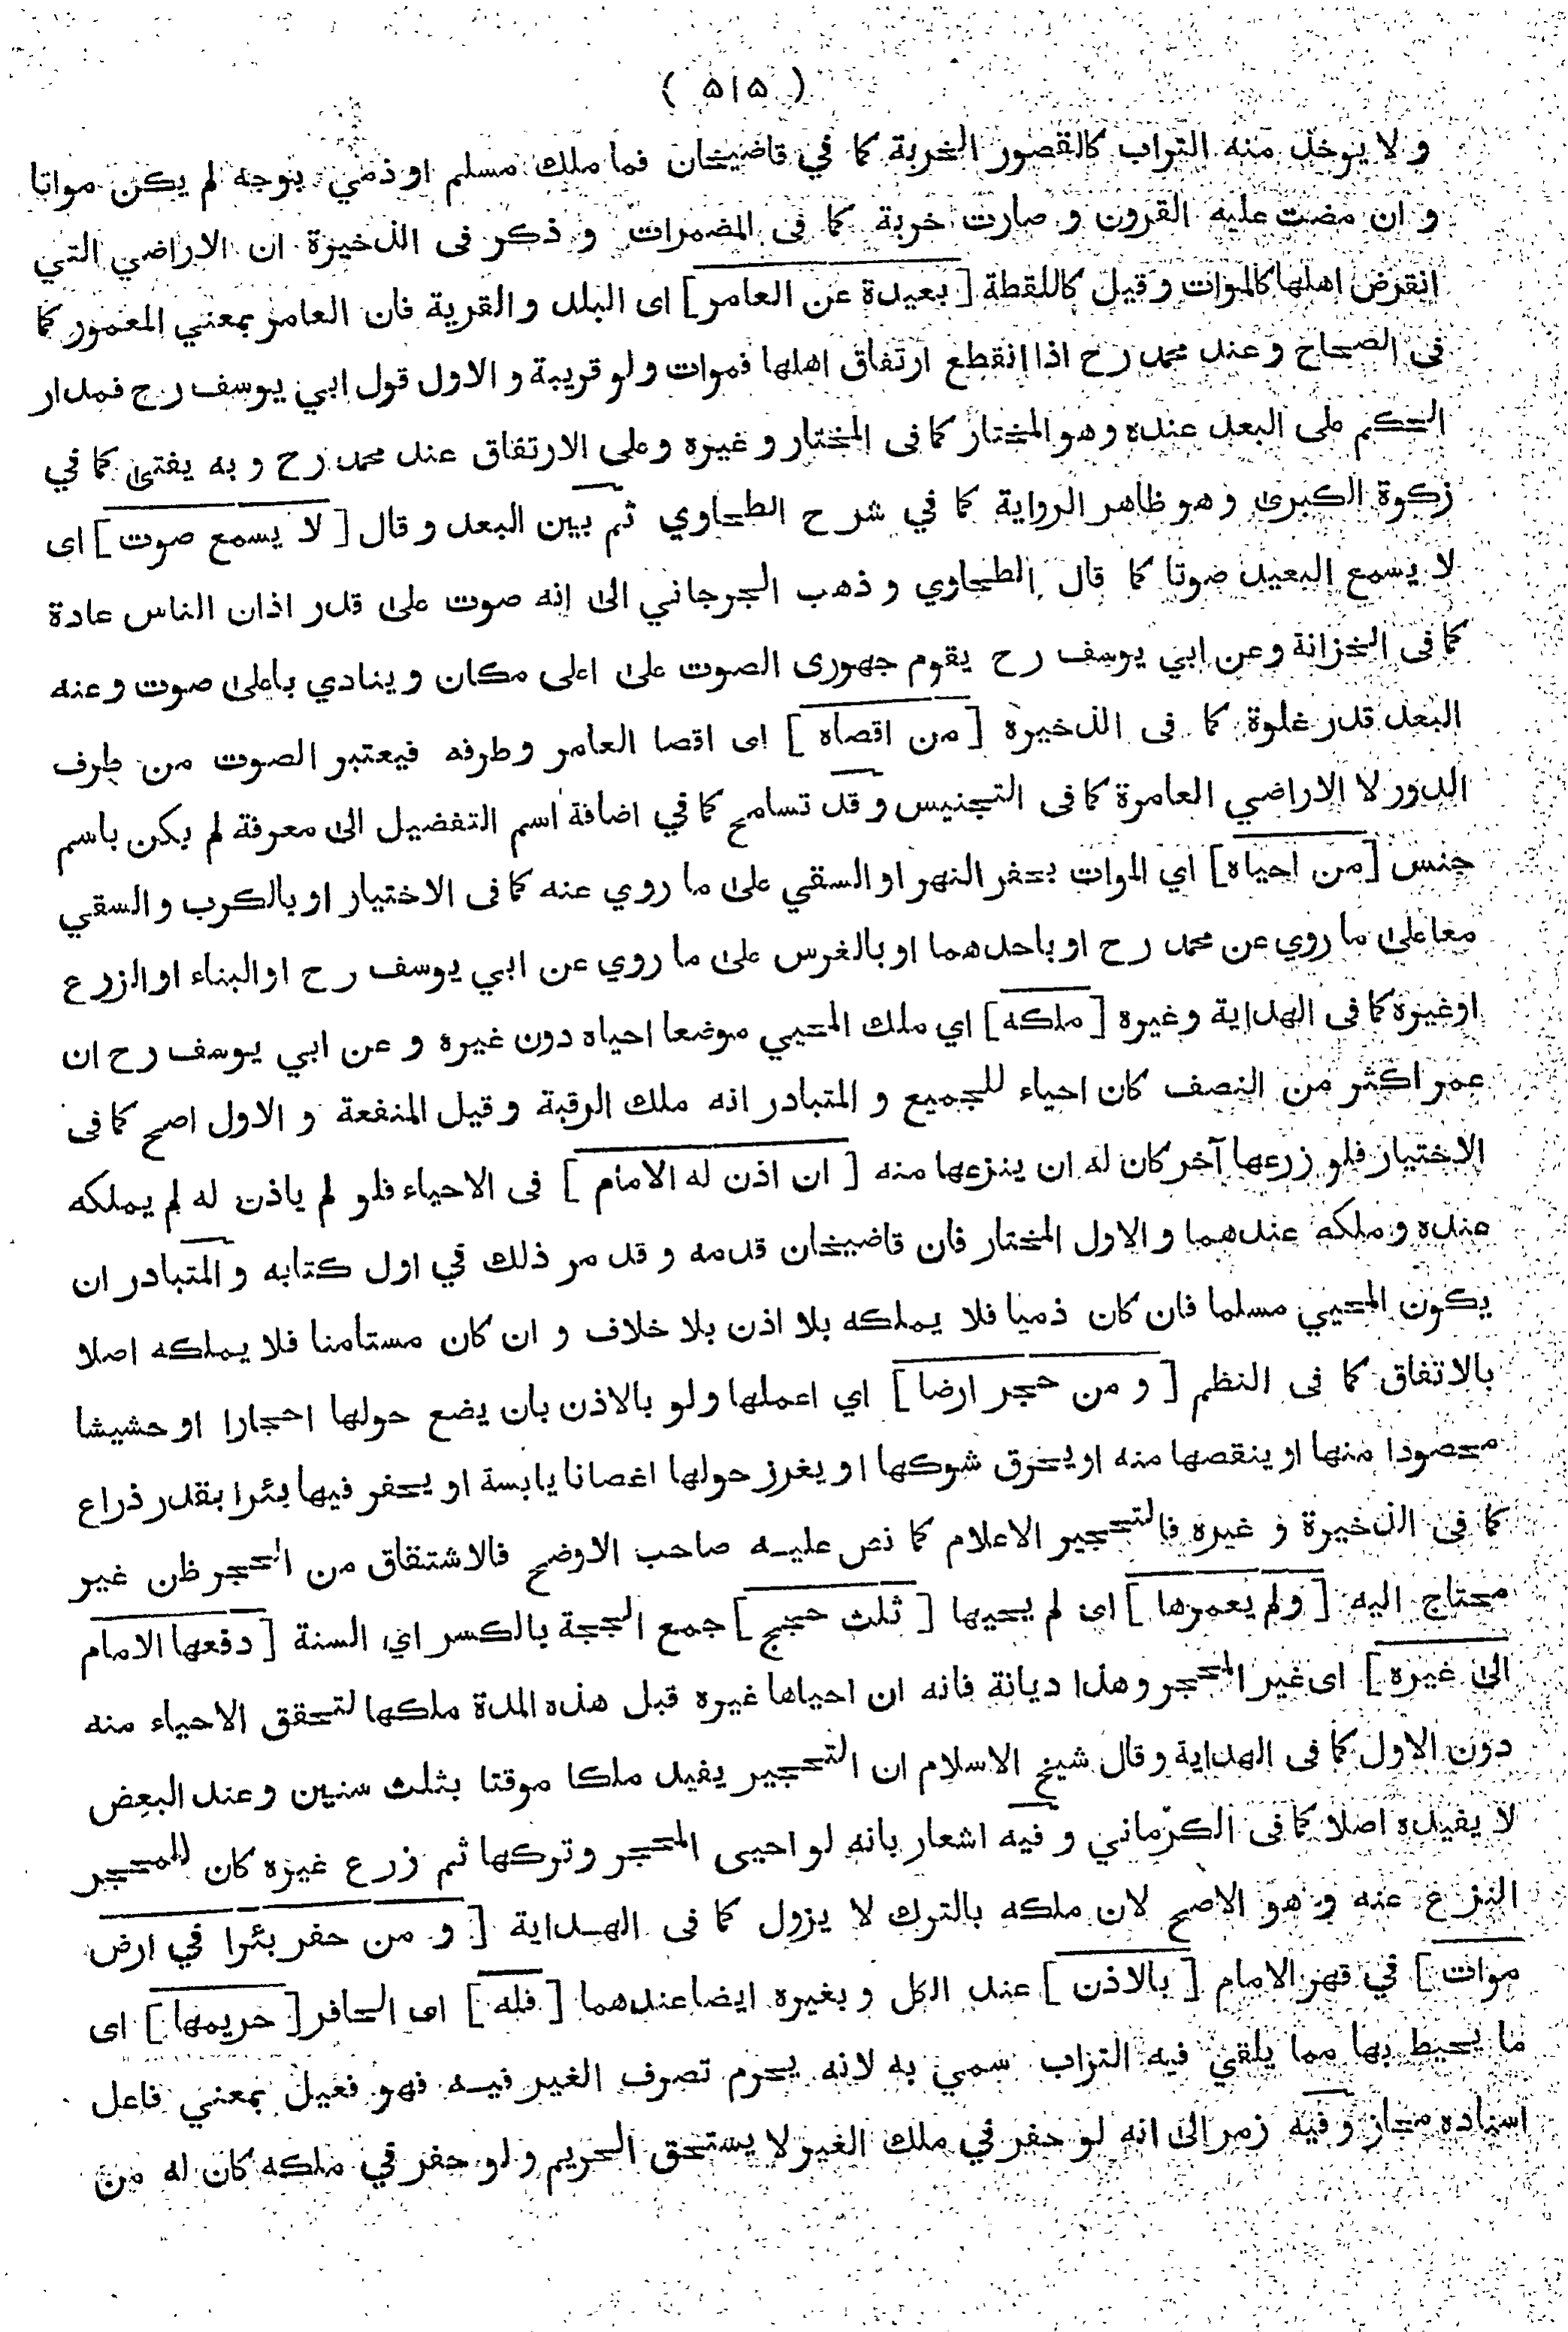 ( ۵۱۵ )
و لا يوخذ منه التراب كالقصور الخربة كما في قاضيخان فما ملك مسلم او ذمي بوجه لم يكن مواتا
و ان مضت عليه القرون و صارت خربة كما فى المضمرات و ذكر فى الذخيرة ان الاراضي التي
انقرض اهلها كالموات و قيل كاللقطة [ بعيدة عن العامر ] اى البلد و القرية فان العامر بمعني المعمور كما
فى الصحاح و عند محمد رح اذا انقطع ارتفاق اهلها فموات و لو قريبة و الاول قول ابي يوسف رح فمدار
الحكم على البعد عنده و هو المختار كما فى المختار و غيره و على الارتفاق عند محمد رح و به يفتى كما في
زكوة الكبرى و هو ظاهر الرواية كما في شرح الطحاوي ثم بين البعد و قال [ لا يسمع صوت ] اى
لا يسمع البعيد صوتا كما قال الطحاوي و ذهب الجرجاني الى انه صوت على قدر اذان الناس عادة
كما فى الخزانة و عن ابي يوسف رح يقوم جهورى الصوت على اعلى مكان و ينادي باعلى صوت و عنه
البعد قدر غلوة كما فى الذخيرة [ من اقصاه ] اى اقصا العامر و طرفه فيعتبر الصوت من طرف
الدور لا الاراضي العامرة كما فى التجنيس و قد تسامح كما في اضافة اسم التفضيل الى معرفة لم يكن باسم
جنس [ من احياه ] اي الموات بحفر النهر او السقي على ما روي عنه كما فى الاختيار او بالكرب و السقي
معا على ما روي عن محمد رح او باحدهما او بالغرس على ما روي عن ابي يوسف رح او البناء او الزرع
او غيره كما فى الهداية و غيره [ ملكه ] اي ملك المحيي موضعا احياه دون غيره و عن ابي يوسف رح ان
عمر اكثر من النصف كان احياء للجميع و المتبادر انه ملك الرقبة و قيل المنفعة و الاول اصح كما فى
الاختيار فلو زرعها آخر كان له ان ينزعها منه [ ان اذن له الامام ] فى الاحياء فلو لم ياذن له لم يملكه
عنده و ملكه عندهما و الاول المختار فان قاضيخان قدمه و قد مر ذلك في اول كتابه و المتبادر ان
يكون المحيي مسلما فان كان ذميا فلا يملكه بلا اذن بلا خلاف و ان كان مستامنا فلا يملكه اصلا
بالاتفاق كما فى النظم [ و من حجر ارضا ] اي اعملها و لو بالاذن بان يضع حولها احجارا او حشيشا
محصودا منها او ينقصها منه او يحرق شوكها او يغرز حولها اغصانا يابسة او يحفر فيها بئرا بقدر ذراع
كما فى الذخيرة و غيره فالتحجير الاعلام كما نص عليه صاحب الاوضح فالاشتقاق من الحجر ظن غير
محتاج اليه [ و لم يعمرها ] اى لم يحيها [ ثلث حجج ] جمع الحجة بالكسر اي السنة [ دفعها الامام
الى غيره ] اى غير المحجر و هذا ديانة فانه ان احياها غيره قبل هذه المدة ملكها لتحقق الاحياء منه
دون الاول كما فى الهداية و قال شيخ الاسلام ان التحجير يفيد ملكا موقتا بثلث سنين و عند البعض
لا يفيده اصلا كما فى الكرماني و فيه اشعار بانه لو احيى المحجر و تركها ثم زرع غيره كان للمحجر
النزع عنه و هو الاصح لان ملكه بالترك لا يزول كما فى الهداية [ و من حفر بئرا في ارض
موات ] في قهر الامام [ بالاذن ] عند الكل و بغيره ايضا عندهما [ فله ] اى الحافر [ حريمها ] اى
ما يحيط بها مما يلقي فيه التراب سمي به لانه يحرم تصرف الغير فيه فهو فعيل بمعني فاعل
اسناده مجاز و فيه رمز الى انه لو حفر في ملك الغير لا يستحق الحريم و لو حفر في ملكه كان له من